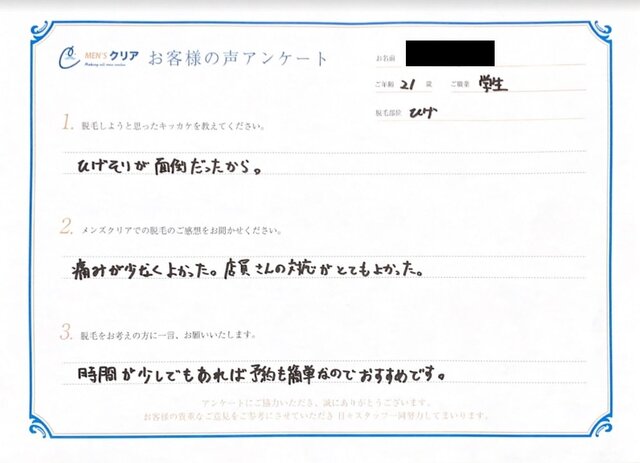 MEN'S クリア
お客様の声アンケート
お名前
ご年齢 21 歳 ご職業 学生
脱毛部位 ひげ
1. 脱毛しようと思ったキッカケを教えてください。
ひげそりが面倒だったから。
2. メンズクリアでの脱毛のご感想をお聞かせください。
痛みが少なくよかった。店員さんの対応がとてもよかった。
3. 脱毛をお考えの方に一言、お願いいたします。
時間が少しでもあれば予約も簡単なのでおすすめです。
アンケートにご協力いただき、誠にありがとうございます。
お客様の貴重なご意見をご参考にさせていただき 日々スタッフ一同努力してまいります。